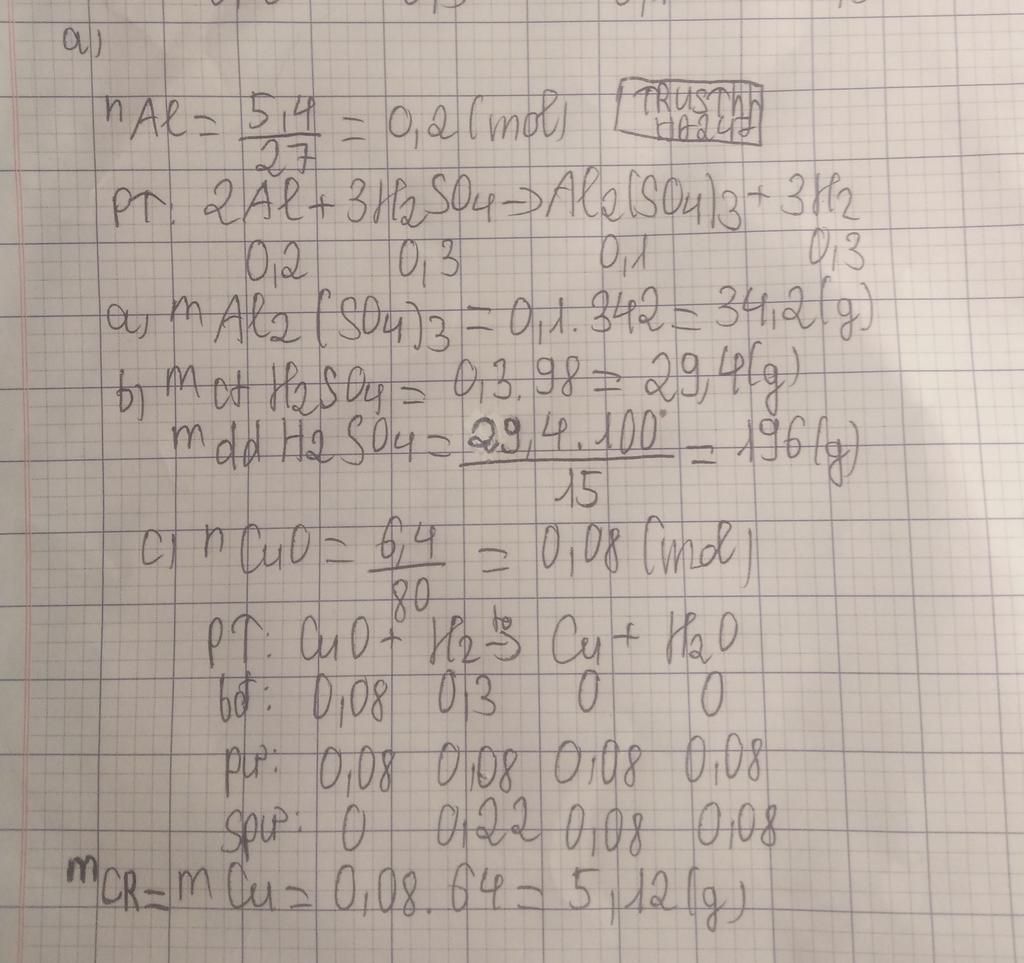 a)
nAl = 5,4/27 = 0,2 (mol) TRUSTNN HA247
PT: 2Al + 3H2SO4 → Al2(SO4)3 + 3H2
0,2 0,3 0,1 0,3
a) mAl2(SO4)3 = 0,1.342 = 34,2(g)
b) mct H2SO4 = 0,3.98 = 29,4(g)
mdd H2SO4 = 29,4.100/15 = 196(g)
c) nCuO = 6,4/80 = 0,08 (mol)
PT: CuO + H2 to→ Cu + H2O
bđ: 0,08 0,3 0 0
pư: 0,08 0,08 0,08 0,08
spư: 0 0,22 0,08 0,08
mCR = mCu = 0,08.64 = 5,12(g)